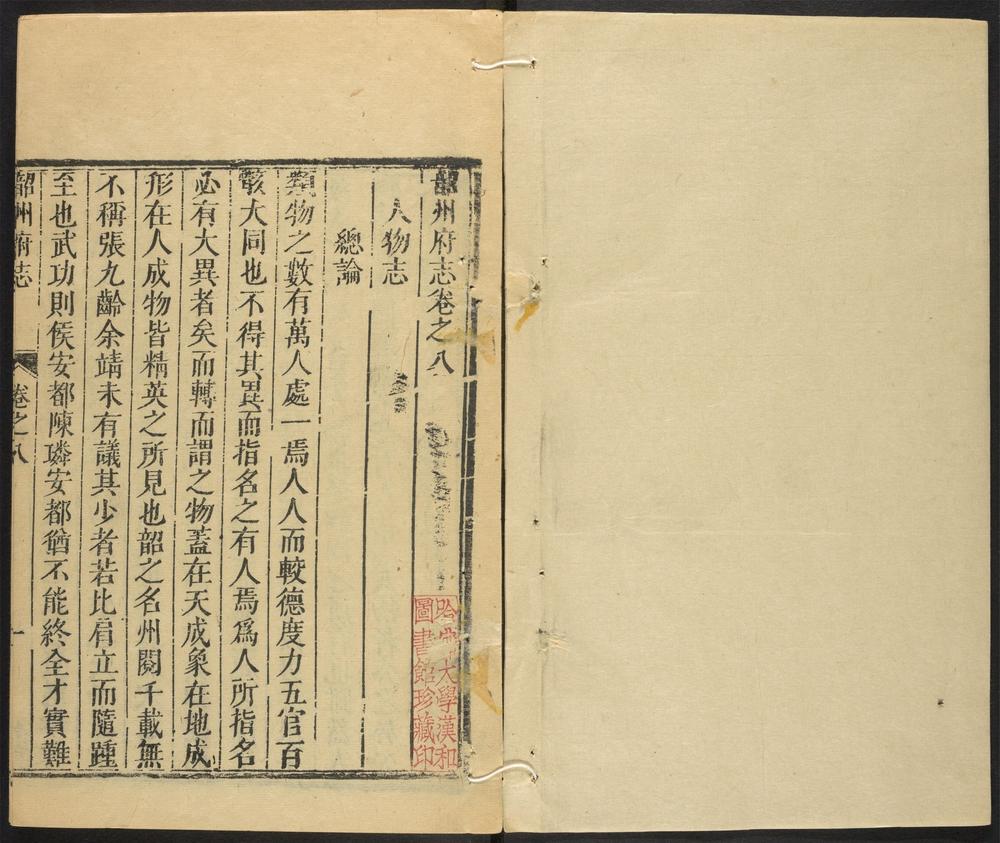 韶州府志卷之八
人物志
總論
類物之數有萬人處一焉人人而較德度力五官百
骸大同也不得其異而指名之有人焉爲人所指名
必有大異者矣而轉而謂之物蓋在天成象在地成
形在人成物皆精英之所見也韶之名州閱千載無
不稱張九齡余靖未有議其少者若比肩立而隨踵
至也武功則侯安都陳璘安都猶不能終全才實難
韶州府志
卷之八
一
哈佛大學漢和
圖書館珍藏印